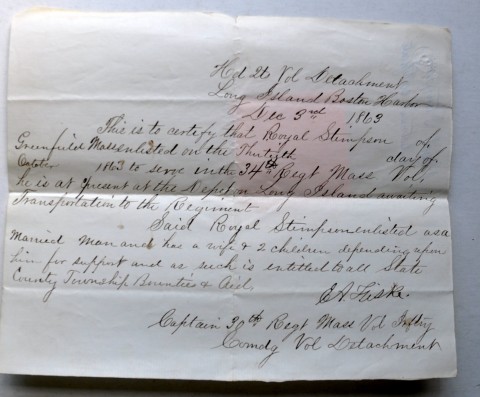 Hd Qts Vol Detachment
Long Island Boston Harbor
Dec 3rd 1863
This is to certify that Royal Stimpson of
Greenfield Mass enlisted on the Thirtyth day of
October 1863 to serve in the 34th Regt Mass Vol,
he is at present at the Depot on Long Island awaiting
Transportation to the Regiment
Said Royal Stimpson enlisted as a
Married Man and has a wife & 2 children depending upon
him for support and as such is entitled to all State
County Township Bounties & Aid.
E A Fiske
Captain 30th Regt Mass Vol Inftry
Comdg Vol Detachment